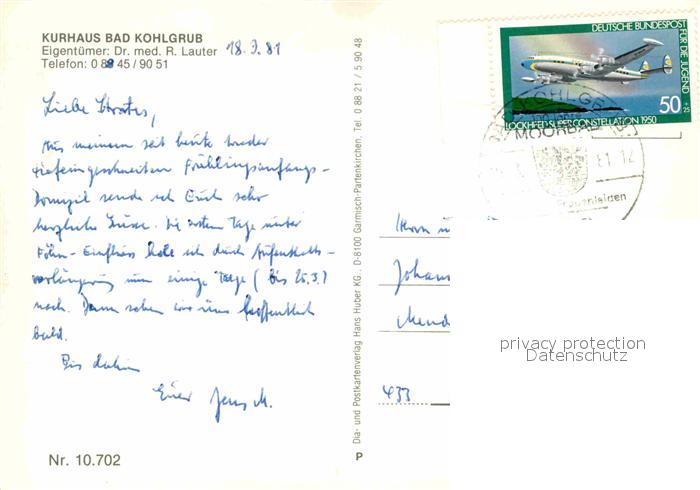 KURHAUS BAD KOHLGRUB
Eigentümer: Dr. med. R. Lauter 18.3.81
Telefon: 0 88 45 / 90 51
Liebe
Aus meinem seit heute wieder
tiefeingeschneiten Frühlingsanfangs-
Domizil sende ich Euch sehr
herzliche Grüsse. Die ersten Tage unter
Föhn-Einfluss hole ich durch Aufenthalts-
verlängerung um einige Tage (bis 25.3.)
nach. Dann sehen wir uns hoffentlich
bald.
Bis dahin
Euer Jens M.
Nr. 10.702
Dia- und Postkartenverlag Hans Huber KG., D-8100 Garmisch-Partenkirchen, Tel. 0 88 21 / 5 90 48
P
DEUTSCHE BUNDESPOST
FÜR DIE JUGEND
50
+25
LOCKHEED SUPER CONSTELLATION 1950
KOHLG
MOORBAD
81.12
Frauenleiden
Herrn u
Johan
Mend
433
privacy protection
Datenschutz